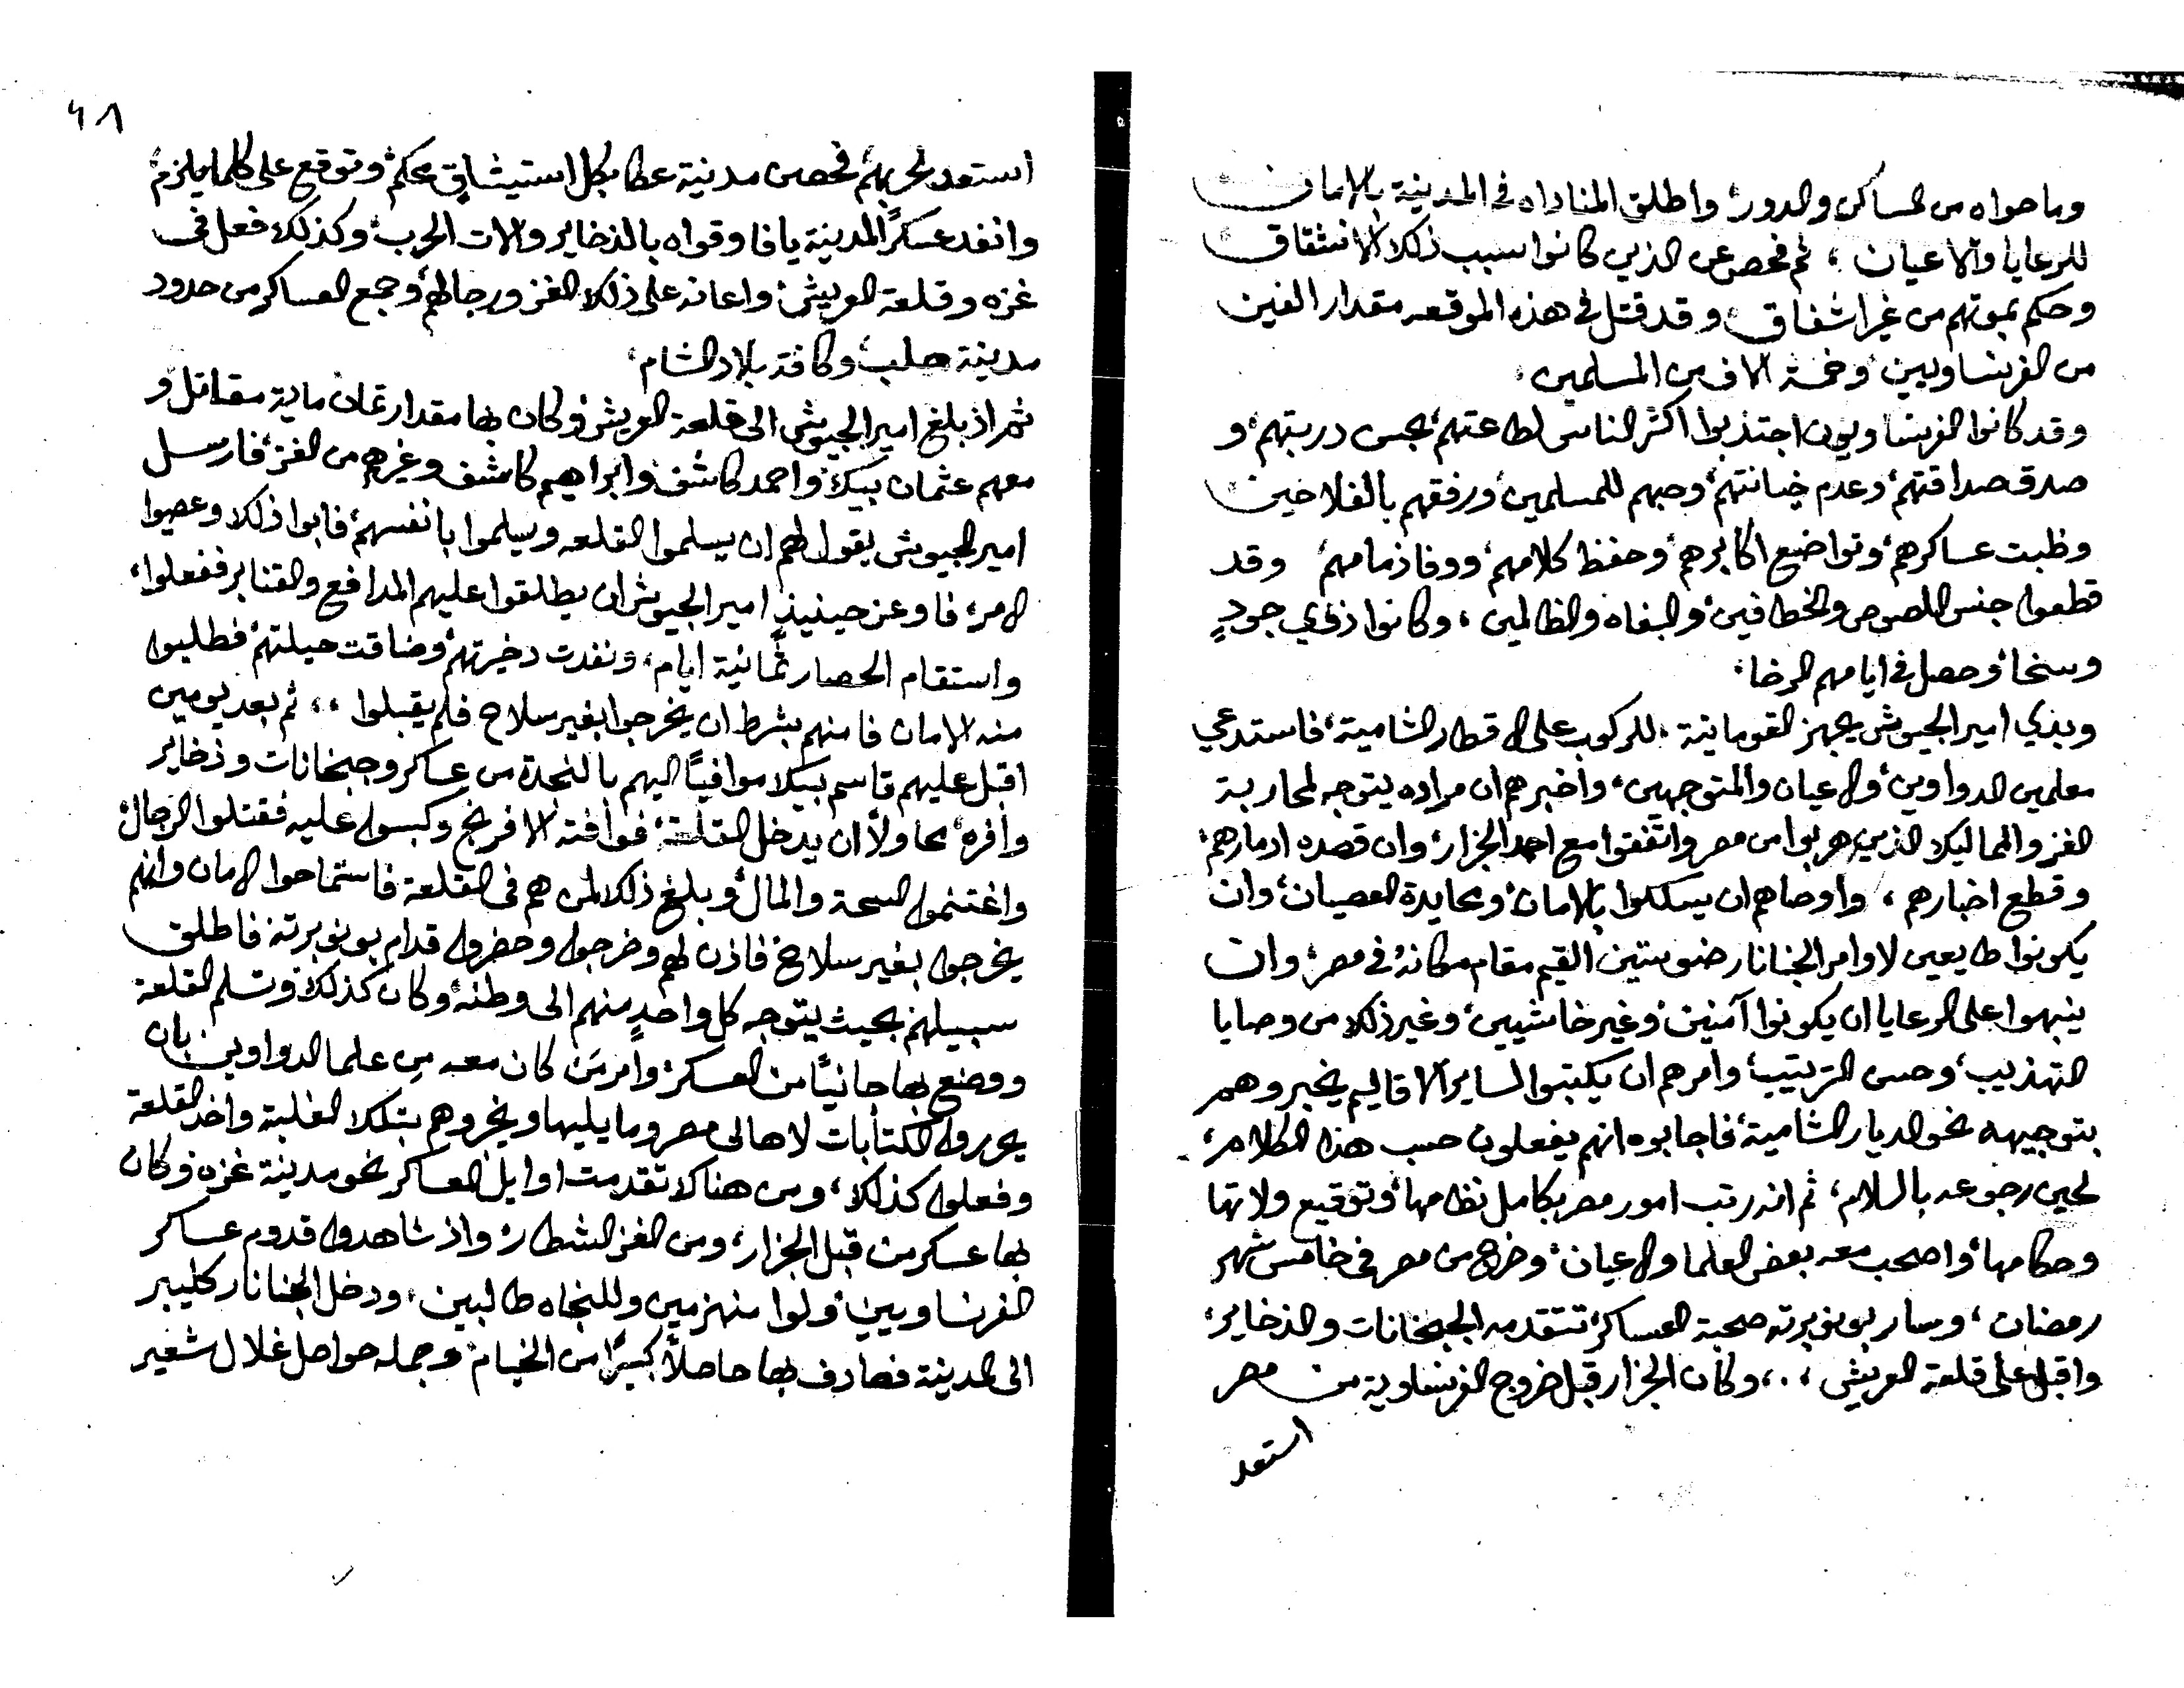 وما حواه من المساكن والدور، واطلق المناداه في المدينة بالامان
للرعايا والاعيان، ثم فحص عن الذين كانوا سبب ذلك الانشقاق
وحكم بموتهم من غير اشفاق، وقد قتل في هذه الموقعه مقدار الفين
من الفرنساويين، وخمسة الاف من المسلمين،
وقد كانوا الفرنساويون اجتذبوا اكثر الناس لطاعتهم، بحسن دربتهم، و
صدق صداقتهم، وعدم خيانتهم، وحبهم للمسلمين، ورفقهم بالفلاحين
وظبت عساكرهم، وتواضع اكابرهم، وحفظ كلامهم، ووفا ذمامهم، وقد
قطعوا جنس اللصوص والخطافين، والبغاه والظالمين، وكانوا ذوي جودٍ
وسخا، وحصل في ايامهم الرخا،
وبدي امير الجيوش يجهز القومانية، للركوب على الاقطار الشامية، فاستدعي
معلمين الدواوين، والاعيان والمتوجهين، واخبرهم ان مراده يتوجه لمحاربة
الغز والمماليك الذين هربوا من مصر واتفقوا مع احمد الجزار، وان قصده ادمارهم،
وقطع اخبارهم، واوصاهم ان يسلكوا بالامان، ومحايدة العصيان، وان
يكونوا طايعين لاوامر الجنانار ضنوستين القيم مقام مكانه في مصر، وان
ينبهوا على الرعايا ان يكونوا آمنين، وغير خاشيين، وغير ذلك من وصايا
التهذيب، وحسن الترتيب، وامرهم ان يكتبوا لساير الاقاليم يخبروهم
بتوجيهه نحو الديار الشامية، فاجابوه انهم يفعلون حسب هذا الكلام،
لحين رجوعه بالسلام، ثم انه رتب امور مصر بكامل نظامها، وتوقيع ولاتها
وحكامها، واصحب معه بعض العلما والاعيان، وخرج من مصر في خامس شهر
رمضان، وسار بونوبرته صحبة العساكر، تتقدمه الجبخانات والذخاير،
واقبل على قلعة العريش،، وكان الجزار قبل خروج الفرنساوية من مصر
استعد
٤٨
استعد لحربهم، فحصن مدنية عكا بكل استيثاق محكم، وتوقع على كلما يلزم
وانفد عسكراً لمدينة يافا وقواه بالذخاير والات الحرب، وكذلك فعل في
غزه وقلعة العريش، واعانه على ذلك الغز ورجالهم، وجمع العساكر من حدود
مدينة حلب، وكافة بلاد الشام،
ثم اذ بلغ امير الجيوش الى قلعة العريش، وكان بها مقدار ثمان ماية مقاتل، و
معهم عثمان بيك، واحمد كاشف، وابراهيم كاشف وغيرهم من الغز، فارسل
امير الجيوش يقول لهم ان يسلموا القلعه ويسلموا بانفسهم، فابوا ذلك وعصيوا
الامر، فاوعز حينيذٍ امير الجيوش ان يطلقوا عليهم المدافع والقنابر ففعلوا،
واستقام الحصار ثمانية ايام، ونفدت دخيرتهم، وضاقت حيلتهم، فطلبوا
منه الامان فامنهم بشرط ان يخرجوا بغير سلاح فلم يقبلوا،، ثم بعد يومين
اقبل عليهم قاسم بيك موافياً اليهم بالنجدة من عساكر وجبخانات وذخاير
وافره، محاولاً ان يدخل القلعة، فوافته الافرنج وكبسوا عليه فقتلوا الرجال،
واغتنموا السحة والمال، وبلغ ذلك لمن هم في القلعة فاستماحوا الامان وانهم
يخرجوا بغير سلاح فاذن لهم وخرجوا وحضروا قدام بونوبرته فاطلق
سبيلهم، بحيث يتوجه كل واحدٍ منهم الى وطنه، وكان كذلك، وتسلم القلعة
ووضع بها جانباً من العسكر، وامر من كان معه من علما الدواوين بان
يحرروا الكتابات لاهالى مصر وما يليها ويخبروهم بتلك الغلبة واخد القلعة
وفعلوا كذلك، ومن هناك تقدمت اوايل العساكر نحو مدينة غزه، وكان
بها عسكر من قبل الجزار، ومن الغز الشطار، واذ شاهدوا قدوم عساكر
الفرنساويين، ولوا منهزمين وللنجاه طالبين، ودخل الجنانار كليبر
الى المدينة فصادف بها حاصلاً كبيراً من الخيام، وجمله حواصل غلال شعير